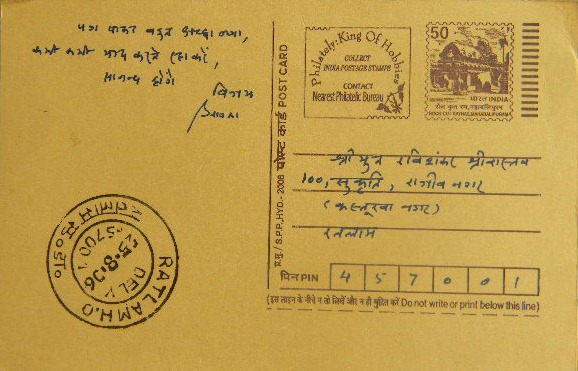 पत्र पाकर बहुत अच्छा लगा,
कभी कभी याद करते रहा करो,
आनन्द होगा
विजय
Philately: King Of Hobbies
COLLECT
INDIA POSTAGE STAMPS
CONTACT
Nearest Philatelic Bureau
50
भारत INDIA
शैल कृत रथ, महाबलिपुरम
ROCK CUT RATHA, MAHABALIPURAM
प्र.मु./S.P.P., HYD.-2006 पोस्ट कार्ड POST CARD
श्रीयुत रविशंकर श्रीवास्तव
100, सुकृति, राजीव नगर
(कस्तूरबा नगर)
रतलाम
पिन PIN 4 5 7 0 0 1
(इस लाइन के नीचे न तो लिखें और न ही मुद्रित करें Do not write or print below this line)
रतलाम मु०डा०
457001
5-8-06
RATLAM H.O